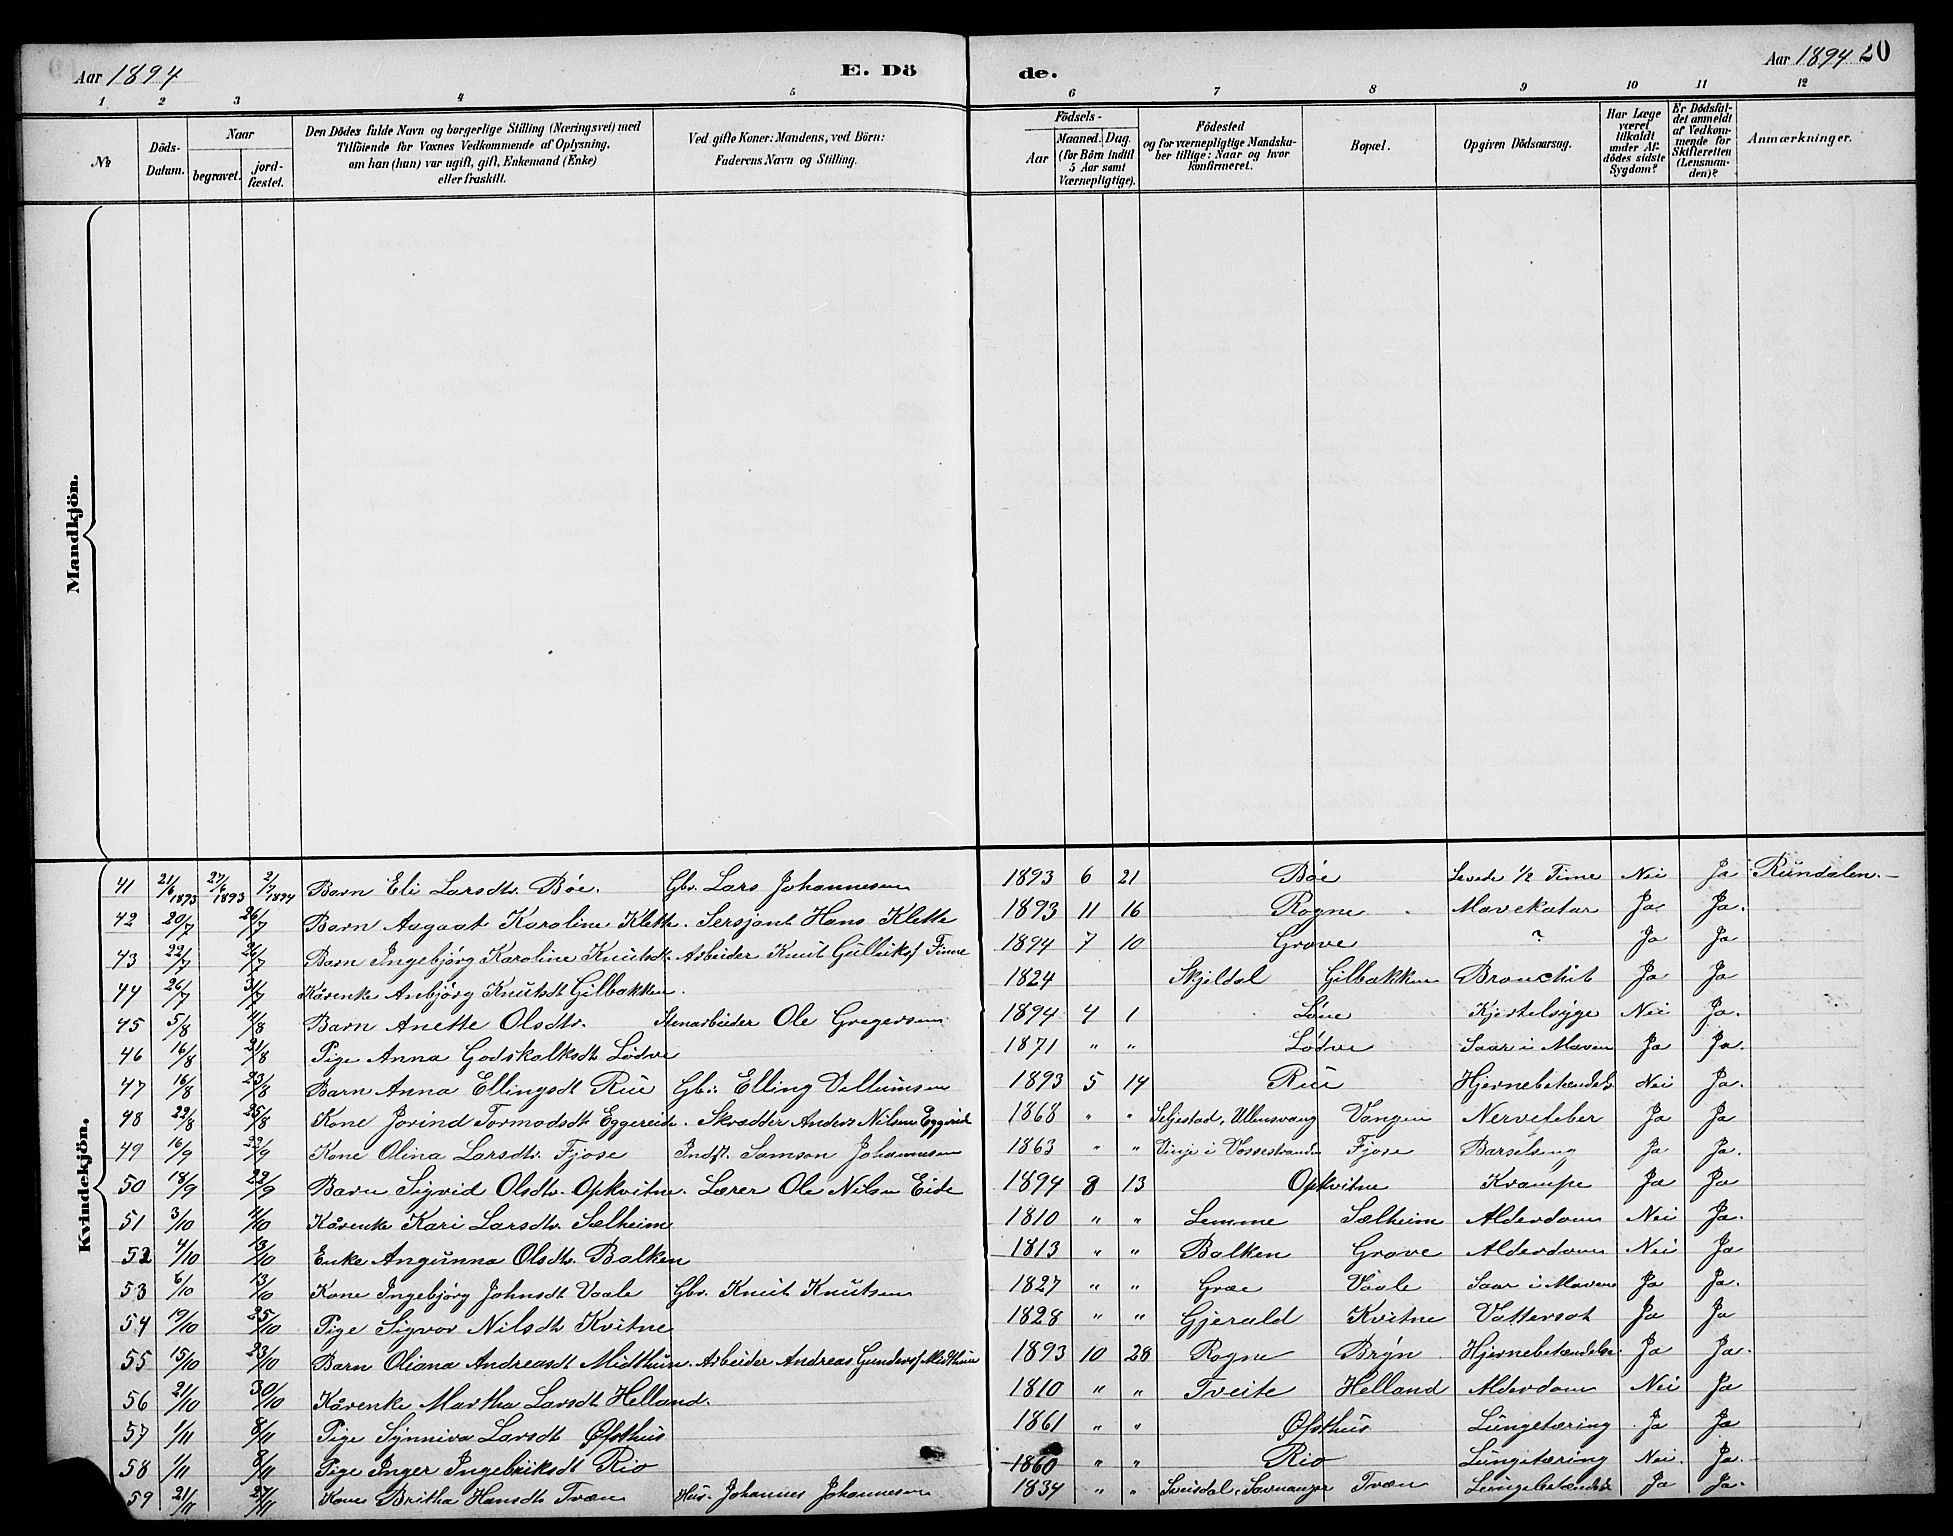 Aar 1894
E. Dö
de.
Aar 1894
20
1 2 3 4 5 6 7 8 9 10 11 12
No
Döds-
Datum.
Naar
begravet.
jord-
fæstet.
Den Dödes fulde Navn og borgerlige Stilling (Næringsvei) med
Tilföiende for Voxnes Vedkommende af Oplysning,
om han (hun) var ugift, gift, Enkemand (Enke)
eller fraskilt.
Ved gifte Koner: Mandens, ved Börn:
Faderens Navn og Stilling.
Födsels-
Aar
Maaned.
Dag.
(for Börn indtil
5 Aar samt
Værnepligtige).
Födested
og for værnepligtige Mandska-
ber tillige: Naar og hvor
konfirmeret.
Bopæl.
Opgiven Dödsaarsag.
Har Læge
været
tilkaldt
under Af-
dödes sidste
Sygdom?
Er Dödsfal-
det anmeldt
af Vedkom-
mende for
Skifteretten
(Lensman-
den)?
Anmærkninger.
Mandkjön.
Kvindekjön.
41 21/6 1893 27/6 1893 2/7 1894 Barn Eli Larsdtr. Bøe. Gbr. Lars Johannesen 1893 6 21 Bøe Levede 1/2 Time Nei Ja Rundalen.
42 20/7 26/7 Barn Aagaat Karoline Klette. Sersjant Hans Klette 1893 11 16 Rogne Mavekatar Ja Ja.
43 22/7 26/7 Barn Ingebjørg Karoline Knutsdt. Arbeider Knut Gulliksf Finne 1894 7 10 Grove ? Ja Ja
44 26/7 31/7 Kårenke Anbjørg Knutsdt Gilbakken. 1824 Skjeldal Gilbakken Bronchit Ja Ja
45 5/8 Barn Anette Olsdtr. Stenarbeider Ole Gregersen 1894 4 1 Løne Kjertelsyge Nei Ja.
46 16/8 21/8 Pige Anna Godskalksdt Lødve 1871 " " Lødve Saar i Maven Ja Ja.
47 16/8 23/8 Barn Anna Ellingsdt Rue Gbr. Elling Villumsen 1893 5 14 Rue Hjernebetændels. Nei Ja.
48 22/8 25/8 Kone Jorind Tormodsdt Eggereide. Skrædder Anders Nilsen Eggereid 1868 " " Seljestad, Ullensvang Vangen Nervefeber Ja Ja
49 16/9 22/9 Kone Olina Larsdtr. Fjose Indst. Samson Johannesen 1863 " " Vinje i Vossestranden Fjose Barselseng Ja Ja.
50 18/9 22/9 Barn Sigvid Olsdtr. Opkvitne. Lærer Ole Nilsen Eide 1894 8 13 Opkvitne Krampe Ja Ja
51 3/10 Kårenke Kari Larsdtr. Sælheim 1810 " " Lemme Sælheim Alderdom Nei Ja.
52 4/10 13/10 Enke Angunna Olsdtr. Balken 1813 " " Balken Grove Alderdom Nei Ja
53 6/10 13/10 Kone Ingebjørg Johnsdt Vaale Gbr. Knut Knutsen 1827 " " Græe Vaale Saar i Maven Ja Ja.
54 19/10 25/10 Pige Sigvor Nilsdt Kvitne 1828 " " Gjerald Kvitne Vattersot Ja Ja
55 15/10 23/10 Barn Oliana Andreasdt Midthun. Arbeider Andreas Gundersf. Midthun 1893 10 28 Rogne Bryn Hjernebetændelse Ja Ja.
56 21/10 30/10 Kårenke Martha Larsdt Helland. 1810 " " Tveite Helland Alderdom Nei Ja
57 1/11 8/11 Pige Synniva Larsdt Øfsthus 1861 " " Øfsthus Lungetæring Ja Ja
58 1/11 8/11 Pige Inger Ingebriksdt Rio 1860 " " Rio Lungetæring Nei. Ja.
59 21/11 27/11 Kone Britha Hansdt Tvæn Hus. Johannes Johannesen 1834 " " Tvæn Lungebetændels Ja Ja.